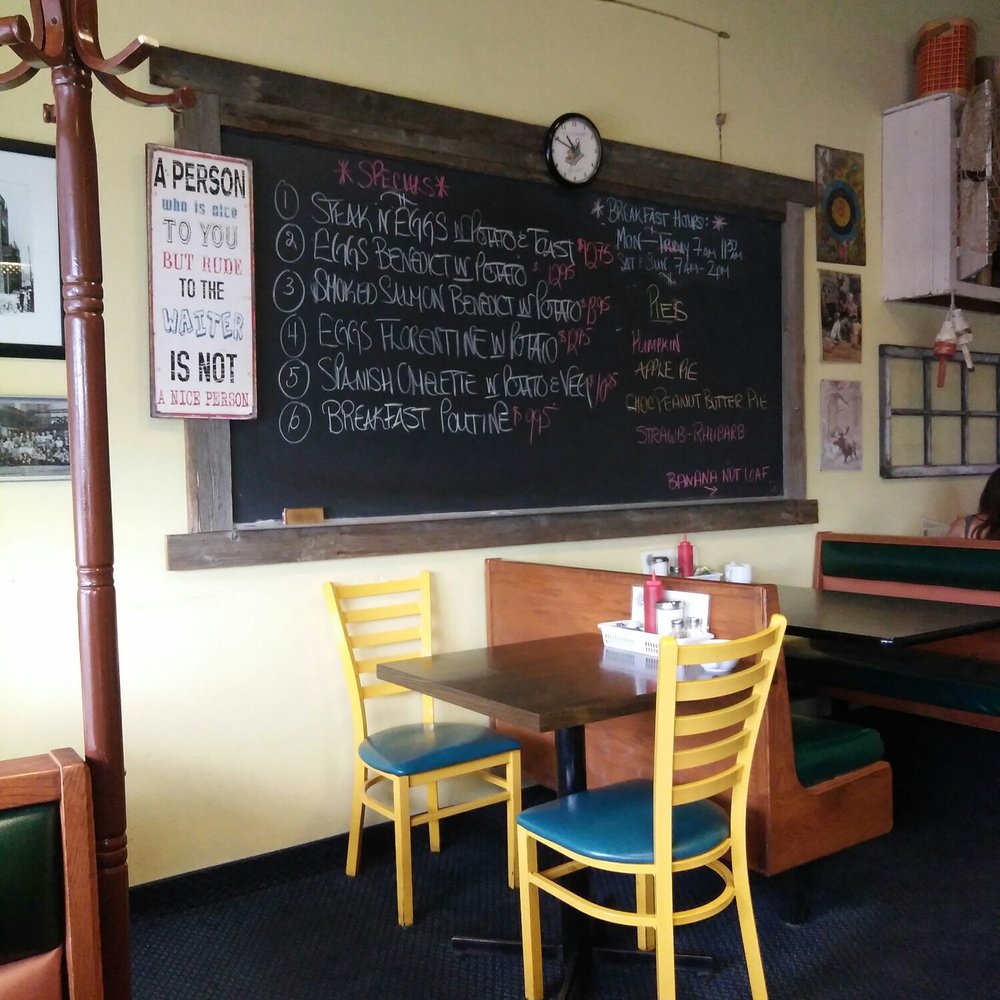 A PERSON
who is nice
TO YOU
BUT RUDE
TO THE
WAITER
IS NOT
A NICE PERSON
* SPECIALS *
1 STEAK 'N EGGS W POTATO & TOAST $12.75
2 EGGS BENEDICT W POTATO $12.95
3 SMOKED SALMON BENEDICT W POTATO
4 EGGS FLORENTINE W POTATO $12.95
5 SPANISH OMELETTE W POTATO &
6 BREAKFAST POUTINE $9.95
* BREAKFAST HOURS: *
MON - FRIDAY 7AM 11:30AM
SAT & SUN 7AM - 2PM
PIES
PUMPKIN
APPLE PIE
CHOC PEANUT BUTTER PIE
STRAWB-RHUBARB
BANANA NUT LOAF